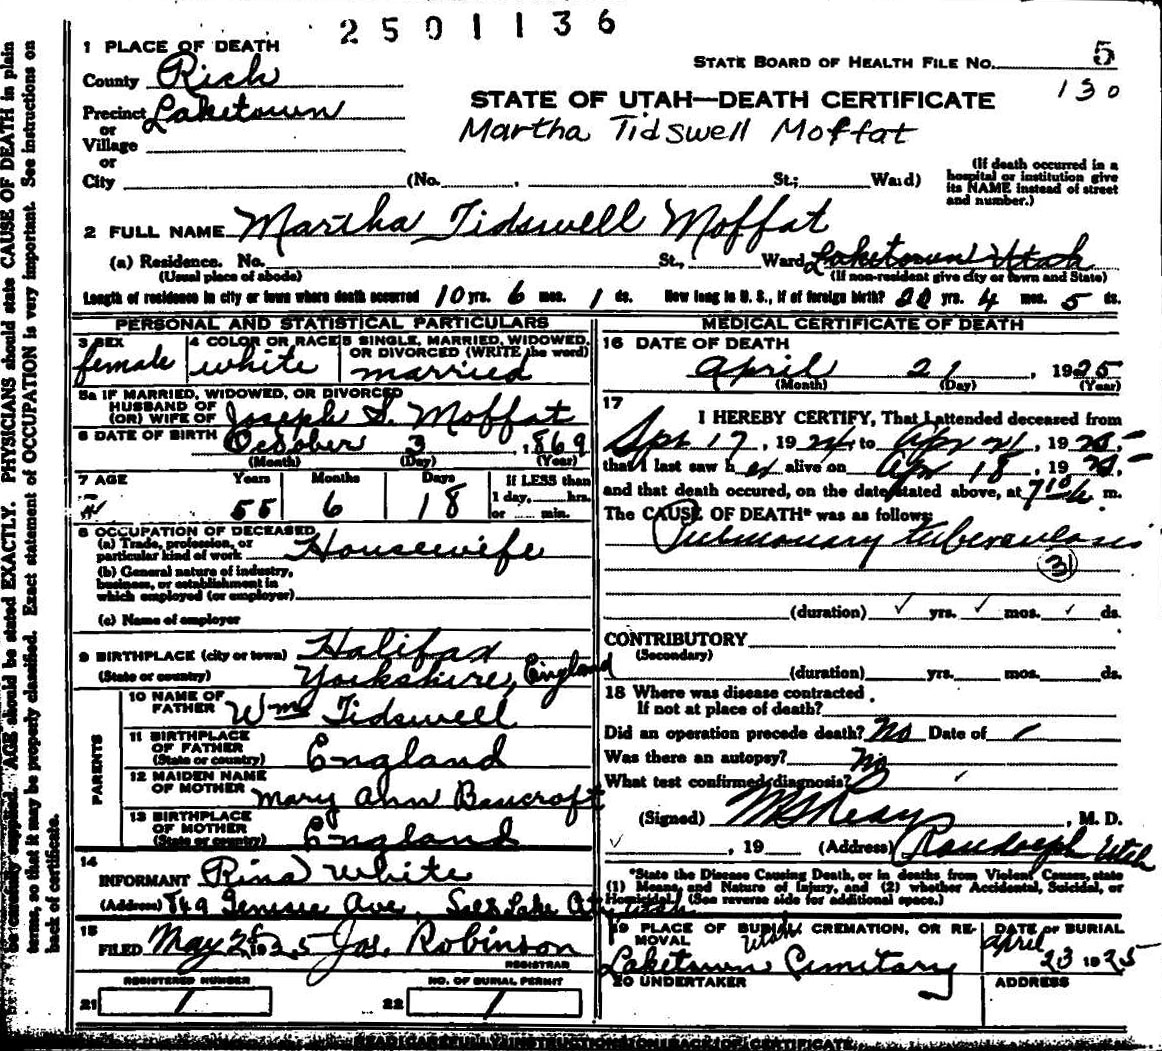 2501136
1 PLACE OF DEATH
County Rich
STATE BOARD OF HEALTH FILE No. 5
130
Precinct Laketown
or
Village
or
City (No. , St.; Ward)
STATE OF UTAH—DEATH CERTIFICATE
Martha Tidswell Moffat
(If death occurred in a
hospital or institution give
its NAME instead of street
and number.)
2 FULL NAME Martha Tidswell Moffat
(a) Residence. No. St., Ward, Laketown Utah
(Usual place of abode) (If non-resident give city or town and State)
Length of residence in city or town where death occurred 10 yrs. 6 mos. 1 ds. How long in U. S., if of foreign birth? 20 yrs. 4 mos. 5 ds.
PERSONAL AND STATISTICAL PARTICULARS
3 SEX female
4 COLOR OR RACE white
5 SINGLE, MARRIED, WIDOWED,
OR DIVORCED (WRITE the word)
married
5a IF MARRIED, WIDOWED, OR DIVORCED
HUSBAND OF
(OR) WIFE OF Joseph S. Moffat
6 DATE OF BIRTH October 3, 1869
(Month) (Day) (Year)
7 AGE Years Months Days If LESS than
1 day, hrs.
55 6 18 or min.
8 OCCUPATION OF DECEASED
(a) Trade, profession, or
particular kind of work Housewife
(b) General nature of industry,
business, or establishment in
which employed (or employer)
(c) Name of employer
9 BIRTHPLACE (city or town) Halifax
(State or country) Yorkshire, England
PARENTS
10 NAME OF
FATHER Wm Tidswell
11 BIRTHPLACE
OF FATHER
(State or country) England
12 MAIDEN NAME
OF MOTHER Mary Ann Bancroft
13 BIRTHPLACE
OF MOTHER
(State or country) England
14
INFORMANT Rina White
(Address) 849 Genesee Ave, Salt Lake City, Utah
15
FILED May 2, 1925 Jos. Robinson
REGISTRAR
REGISTERED NUMBER
21 1
NO. OF BURIAL PERMIT
22 1
MEDICAL CERTIFICATE OF DEATH
16 DATE OF DEATH
April 21, 1925
(Month) (Day) (Year)
17
I HEREBY CERTIFY, That I attended deceased from
17, 1924 to Apr 21, 1925
that I last saw her alive on Apr 18, 1925,
and that death occured, on the date stated above, at 7 10 m.
The CAUSE OF DEATH* was as follows:
Pulmonary tuberculosis
31
(duration) ✓ yrs. ✓ mos. ✓ ds.
CONTRIBUTORY
(Secondary)
(duration) yrs. mos. ds.
18 Where was disease contracted
If not at place of death?
Did an operation precede death? No Date of
Was there an autopsy? No
What test confirmed diagnosis?
(Signed) , M. D.
, 19 (Address) Randolph Utah
*State the Disease Causing Death, or in deaths from Violent Causes, state
(1) Means, and Nature of Injury, and (2) whether Accidental, Suicidal, or
Homicidal. (See reverse side for additional space.)
19 PLACE OF BURIAL, CREMATION, OR RE-
MOVAL Utah
Laketown Cemitary
DATE OF BURIAL
April
23 1925
20 UNDERTAKER
ADDRESS
AGE should be stated EXACTLY. PHYSICIANS should state CAUSE OF DEATH in plain
terms, so that it may be properly classified. Exact statement of OCCUPATION is very important. See instructions on
back of certificate.